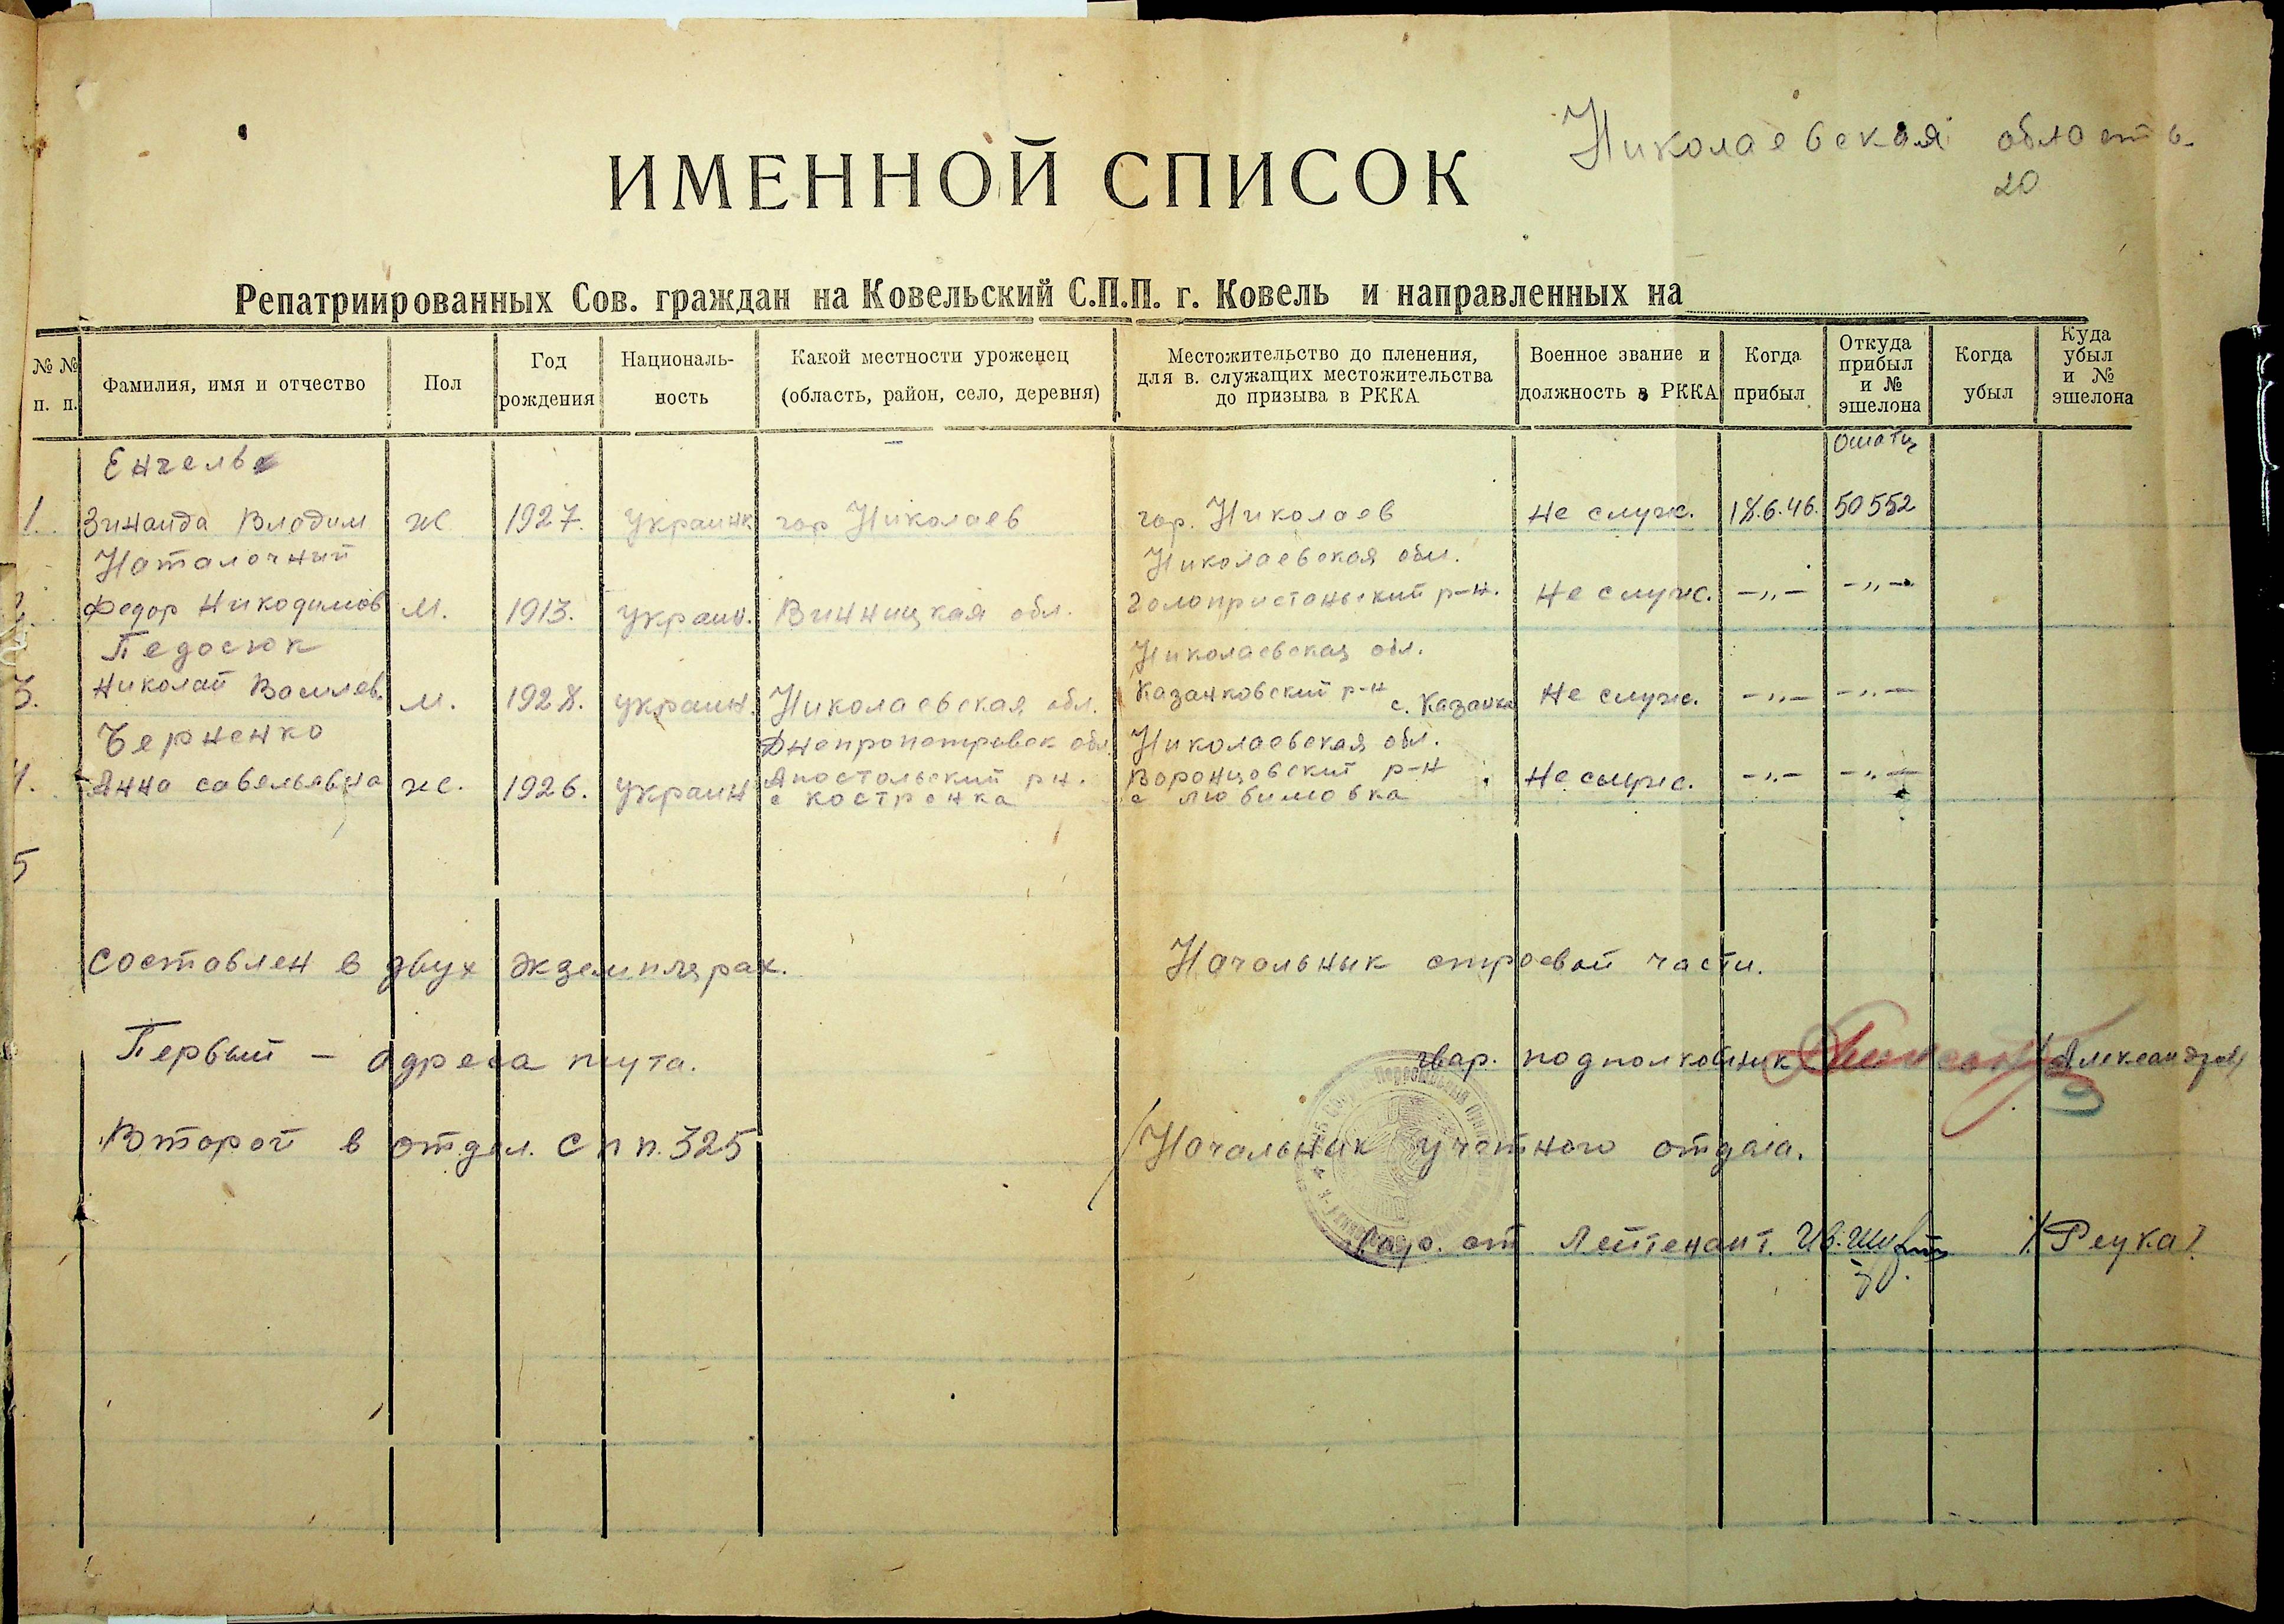 Николаевская область.
20
ИМЕННОЙ СПИСОК
Репатриированных Сов. граждан на Ковельский С.П.П. г. Ковель и направленных на
№ № п. п.
Фамилия, имя и отчество
Пол
Год рождения
Националь- ность
Какой местности уроженец (область, район, село, деревня)
Местожительство до пленения, для в. служащих местожительства до призыва в РККА
Военное звание и должность в РККА
Когда прибыл
Откуда прибыл и № эшелона
Когда убыл
Куда убыл и № эшелона
Енгель
1. Зинаида Владим ж 1927. Украинк гор Николаев гор. Николаев Не служ. 18.6.46. 50552
Наталочний Николаевская обл.
2. Федор Никодимов м. 1913. Украин. Винницкая обл. Голопристаньский р-н. Не служ. -„- -„-
Педосюк Николаевская обл.
3. Николай Василев. м. 1928. Украин. Николаевская обл. Казанковский р-н с. Казанка Не служ. -„- -„-
Черненко Днепропетровск обл. Николаевская обл.
4. Анна Савельевна ж. 1926. Украин Апостольский рн. Воронцовский р-н Не служ. -„- -„-
с Костренка с Любимовка
5
Составлен в двух экземплярах. Начальник строевой части.
Первый – адреса гвар. подполковник /Александров/
Второй в отдел. С п п. 325 Начальник учетного отдела.
Лейтенант. /Реука/